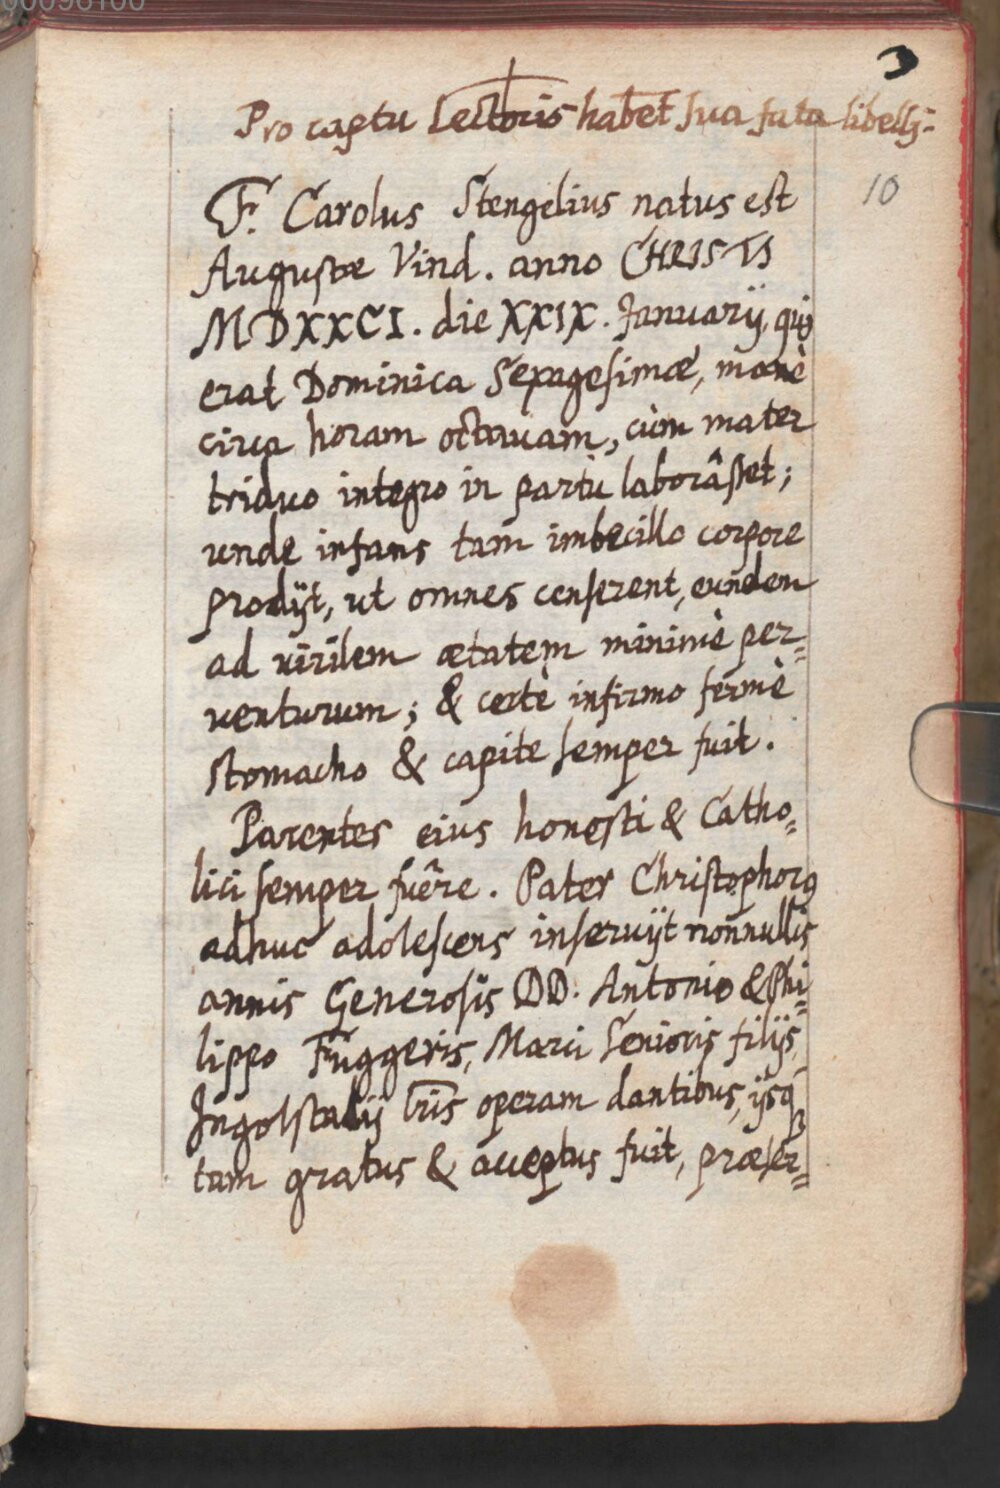 00096100
3
Pro captu Lectoris habet sua fata libelli.
10
F. Carolus Stengelius natus est
Augustæ Vind. anno CHRISTI
MDXXCI. die XXIX. Januarij, qui
erat Dominica Sepagesimæ, manè
circa horam octavam, cùm mater
triduo integro in partu laborâsset;
unde infans tam imbecillo corpore
prodijt, ut omnes censerent, eundem
ad virilem ætatem minimè per=
venturum; & certè infirmo fermè
stomacho & capite semper fuit.
Parentes eius honesti & Catho=
lici semper fuêre. Pater Christophorus
adhuc adolescens inservijt nonnullis
annis Generosis DD. Antonio & Phi=
lippo Fuggeris, Marci Senioris filijs,
Ingolstadij lris operam dantibus, ijsq
tam gratus & acceptus fuit, præser=